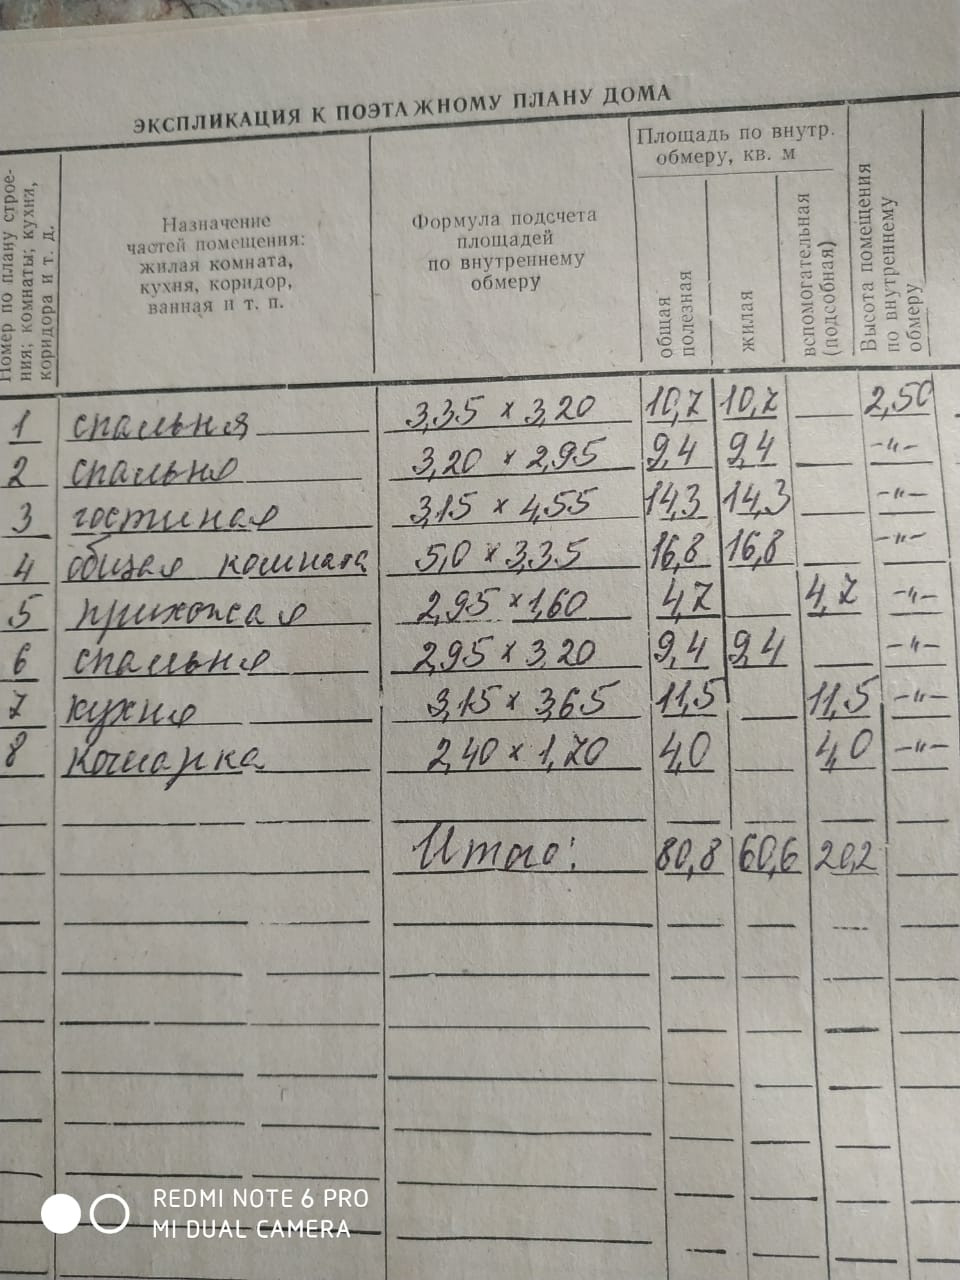 ЭКСПЛИКАЦИЯ К ПОЭТАЖНОМУ ПЛАНУ ДОМА
Номер по плану строе-
ния; комнаты; кухни,
коридора и т. д.
Назначение
частей помещения:
жилая комната,
кухня, коридор,
ванная и т. п.
Формула подсчета
площадей
по внутреннему
обмеру
Площадь по внутр.
обмеру, кв. м
общая
полезная
жилая
вспомогательная
(подсобная)
Высота помещения
по внутреннему
обмеру
1 спальня 3,35 × 3,20 10,7 10,7 2,50
2 спальня 3,20 × 2,95 9,4 9,4 -"-
3 гостиная 3,15 × 4,55 14,3 14,3 -"-
4 общая комната 5,0 × 3,35 16,8 16,8 -"-
5 прихожая 2,95 × 1,60 4,7 4,7 -"-
6 спальня 2,95 × 3,20 9,4 9,4 -"-
7 кухня 3,15 × 3,65 11,5 11,5 -"-
8 кочегарка 2,40 × 1,70 4,0 4,0 -"-
Итого: 80,8 60,6 20,2
REDMI NOTE 6 PRO
MI DUAL CAMERA